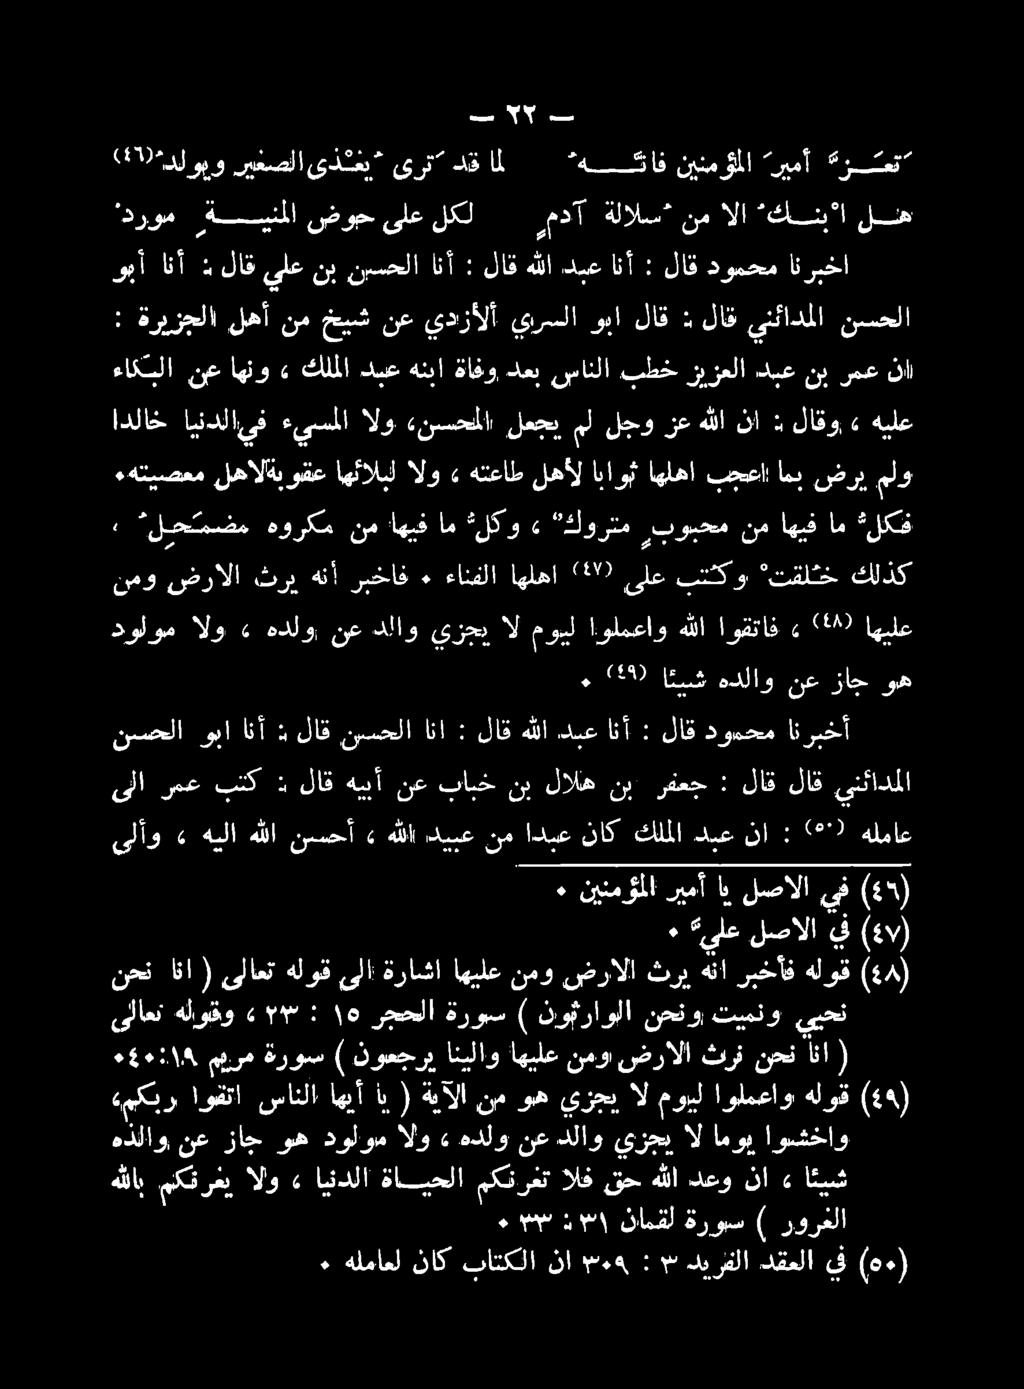 — ٢٢ —
تَعَـزَّ أميرَ المؤمنين فانّـهُ لما قد تَرى يُغْذى الصغير ويولدُ (٤٦)
هـل اْبنـكُ الا من سُلالة آدمٍ لكل على حوض المنيـةِ موردُ
اخبرنا محمود قال : أنا عبد الله قال : أنا الحسين بن علي قال : أنا أبو
الحسن المدائني قال : قال ابو السري الأزدي عن شيخ من أهل الجزيرة :
ان عمر بن عبد العزيز خطب الناس بعد وفاة ابنه عبد الملك ، ونها عن البكاء
عليه ، وقال : ان الله عز وجل لم يجعل المحسن، ولا المسيء في الدنيا خالدا
ولم يرض بما اعجب اهلها ثوابا لأهل طاعته ، ولا لبلائها عقوبة لاهل معصيته .
فكلُّ ما فيها من محبوبٍ متروك ، وكلُّ ما فيها من مكروه مضمَحِلٌ ،
كذلك خُلقتْ وكُتب على (٤٧) اهلها الفناء . فاخبر أنه يرث الارض ومن
عليها (٤٨) ، فاتقوا الله واعملوا ليوم لا يجزي والد عن ولده ، ولا مولود
هو جاز عن والده شيئا (٤٩) .
أخبرنا محمود قال : أنا عبد الله قال : انا الحسين قال : أنا ابو الحسن
المدائني قال قال : جعفر بن هلال بن خباب عن أبيه قال : كتب عمر الى
عامله (٥٠) : ان عبد الملك كان عبدا من عبيد الله ، أحسن الله اليه ، وألى
(٤٦) في الاصل يا أمير المؤمنين .
(٤٧) في الاصل عليَّ .
(٤٨) قوله فأخبر انه يرث الارض ومن عليها اشارة الى قوله تعالى ( انا نحن
نحيي ونميت ونحن الوارثون ) سورة الحجر ١٥ : ٢٣ ، وقوله تعالى
( انا نحن نرث الارض ومن عليها والينا يرجعون ) سورة مريم ١٩:٤٠.
(٤٩) قوله واعملوا ليوم لا يجزي هو من الآية ( يا أيها الناس اتقوا ربكم،
واخشوا يوما لا يجزي والد عن ولده ، ولا مولود هو جاز عن والده
شيئا ، ان وعد الله حق فلا تغرنكم الحيـاة الدنيا ، ولا يغرنكم بالله
الغرور ) سورة لقمان ٣١ : ٣٣ .
(٥٠) في العقد الفريد ٣ : ٣٠٩ ان الكتاب كان لعامله .